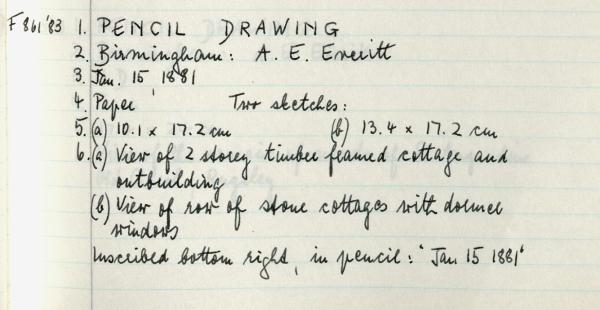 F861'83 1. PENCIL DRAWING
2. Birmingham: A. E. Everitt
3. Jan. 15, 1881
4. Paper Two sketches:
5. (a) 10.1 x 17.2 cm (b) 13.4 x 17.2 cm
6. (a) View of 2 storey timber framed cottage and
outbuilding
(b) View of row of stone cottages with dormer
windows
Inscribed bottom right, in pencil: "Jan 15 1881"